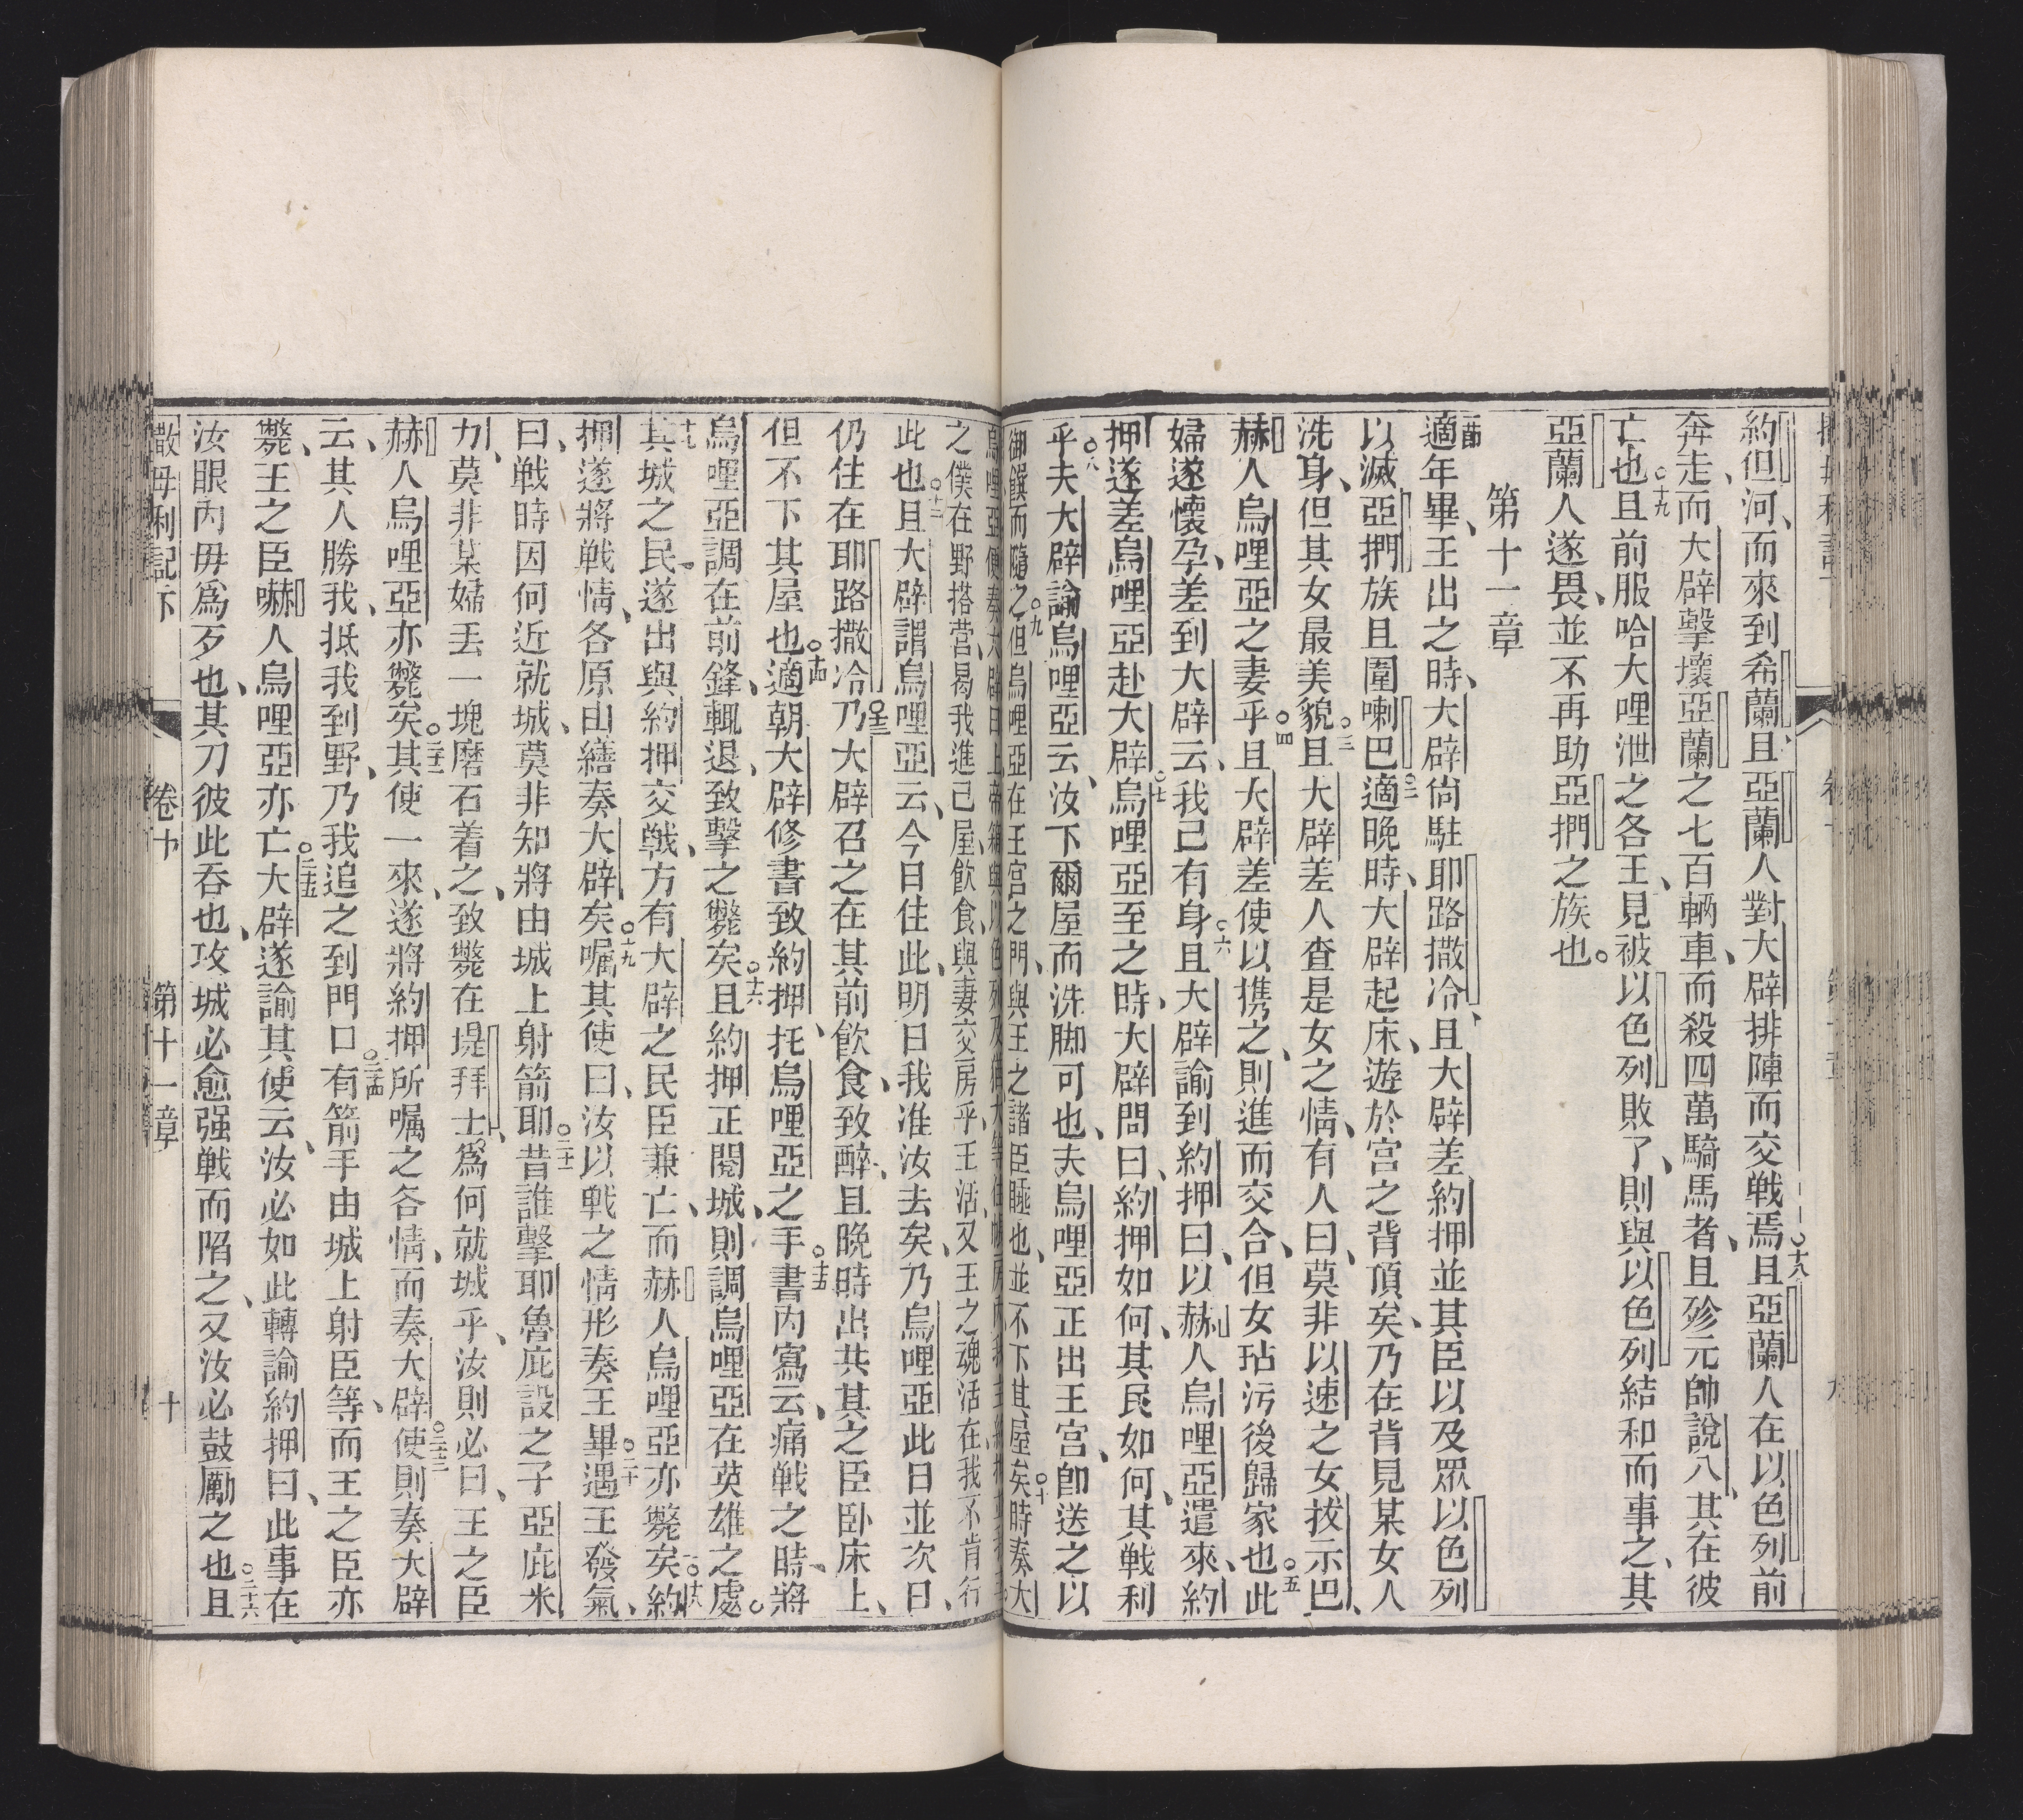 約但河、而來到希蘭且亞蘭人對大辟排陣而交戦焉○十八且亞蘭人在以色列前
奔走、而大辟擊壞亞蘭之七百輛車、而殺四萬騎馬者、且殄元帥說八、其在彼
亡也○十九且前服哈大哩泄之各王、見被以色列敗了、則與以色列結和而事之、其
亞蘭人遂畏、並不再助亞捫之族也。
第十一章
適年畢、王出之時、大辟尙駐耶路撒冷、且大辟差約押並其臣以及眾以色列
以滅亞捫族且圍喇巴○二適晚時、大辟起床、遊於宫之背頂矣、乃在背見某女人
洗身、但其女最美貌○三且大辟差人查是女之情、有人曰、莫非以速之女拔示巴、
赫人烏哩亞之妻乎○四且大辟差使以携之、則進而交合、但女玷污後歸家也○五此
婦遂懷孕、差到大辟云、我已有身○六且大辟諭到約押曰、以赫人烏哩亞遣來、約
押遂差烏哩亞赴大辟○七烏哩亞至之時、大辟問曰、約押如何、其民如何、其戦利
乎○八夫大辟諭烏哩亞云、汝下爾屋而洗脚可也、夫烏哩亞正出王宫、卽送之以
御饌而隨之○九但烏哩亞在王宮之門、與王之諸臣睡也、並不下其屋矣○十時奏大
之僕在野搭营、曷我進己屋、飲食、與妻交房乎、王活、又王之魂活在、我不肯行
此也○十二且大辟謂烏哩亞云、今日住此、明日我准汝去矣、乃烏哩亞此日並次日、
仍住在耶路撒冷○十三乃大辟召之在其前飲食、致醉、且晚時出共其之臣卧床上、
但不下其屋也○十四適朝大辟修書致約押、托烏哩亞之手○十五書內寫云、痛戦之時、將
烏哩亞調在前鋒、輒退、致擊之斃矣○十六且約押正閱城、則調烏哩亞在英雄之處。
十七其城之民。遂出與約押交戦、方有大辟之民臣兼亡、而赫人烏哩亞亦斃矣○十八約
押遂將戦情、各原由繕奏大辟矣○十九囑其使曰、汝以戦之情形奏王畢○二十遇王發氣、
曰、戦時因何近就城、莫非知將由城上射箭耶○二十一昔誰擊耶魯庇設之子、亞庇米
力、莫非某婦丢一塊磨石着之、致斃在堤拜士、爲何就城乎、汝則必曰、王之臣
赫人烏哩亞亦斃矣○二十二其使一來、遂將約押所囑之各情、而奏大辟○二十三使則奏大辟
云、其人勝我、抵我到野、乃我追之到門口○二十四有箭手由城上射臣等、而王之臣亦
斃、王之臣嚇人烏哩亞亦亡○二十五大辟遂諭其使云、汝必如此轉諭約押曰、此事在
汝眼內毋爲歹也、其刀彼此吞也、攻城必愈强戦而陷之、又汝必鼓勵之也○二十六且
撒母利記下 卷十 第十一章 十